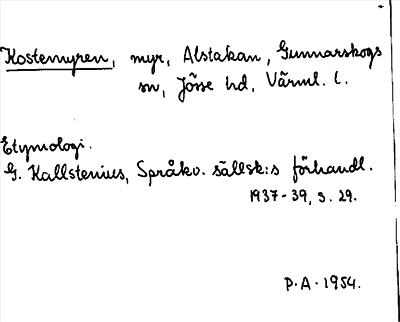 Kostemyren, myr, Alstakan, Gunnarskogs
sn, Jösse hd, Värml. l.
Etymologi.
G. Kallstenius, Språkv. sällsk:s förhandl.
1937-39, s. 29.
P.A. 1954.